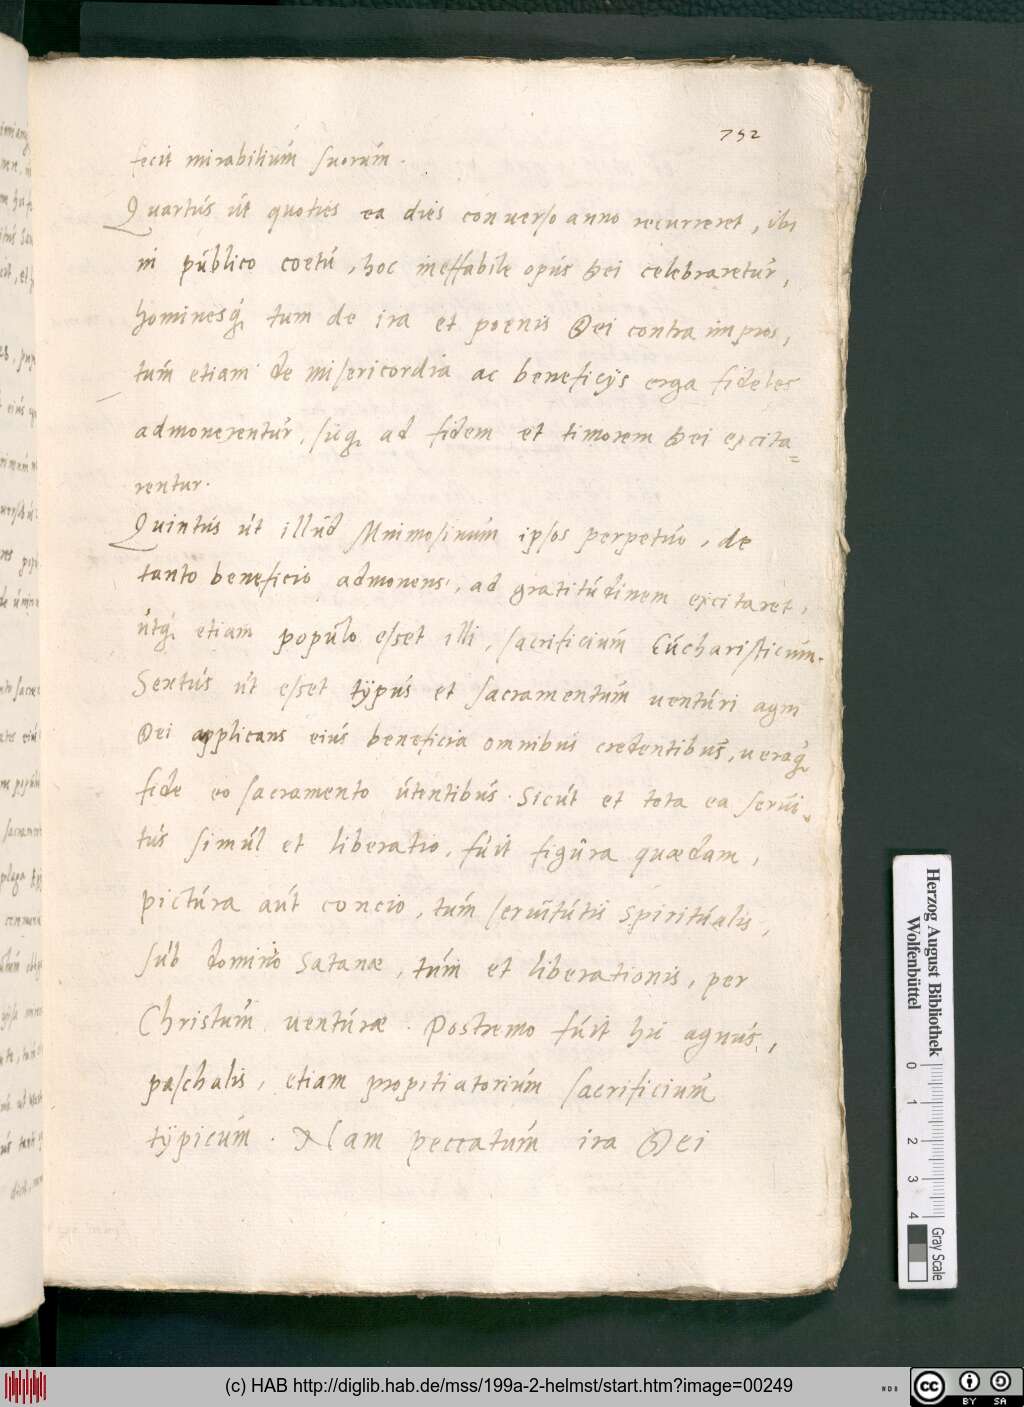 752
fecit mirabilium suorum.
Quartus ut quoties ea dies converso anno recurreret, ibi
in publico coetu, hoc ineffabile opus Dei celebraretur,
hominesq́ tum de ira et poenis Dei contra impios,
tum etiam de misericordia ac beneficijs erga fideles
admonerentur, sicq́ ad fidem et timorem Dei excita=
rentur.
Quintus ut illud Mnimosinum ipsos perpetuo, de
tanto beneficio admonens, ad gratitudinem excitaret,
utq́ etiam populo esset illi, sacrificium Eucharisticum.
Sextus ut esset typus et sacramentum venturi agni
Dei applicans eius beneficia omnibus credentibus, veraq́
fide eo sacramento utentibus. Sicut et tota ea servi-
tus simul et liberatio, fuit figura quaedam,
pictura aut concio, tum servitutis Spiritualis,
sub domino Satanae, tum et liberationis, per
Christum venturae. Postremo fuit hic agnus,
paschalis, etiam propitiatorium sacrificium
typicum. Nam peccatum ira Dei
Herzog August Bibliothek
Wolfenbüttel
0 1 2 3 4
Gray Scale
(c) HAB http://diglib.hab.de/mss/199a-2-helmst/start.htm?image=00249
cc BY SA